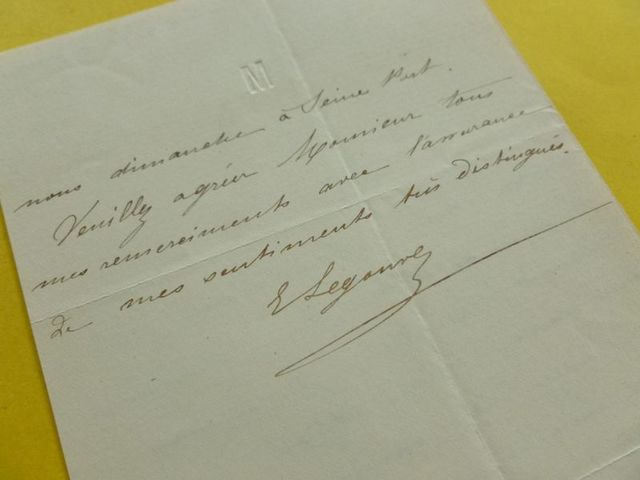 M
nous dimanche à Seine Port.
Veuillez agréer Monsieur tous
mes remerciments avec l'assurance
de mes sentiments très distingués.
E Legouvé